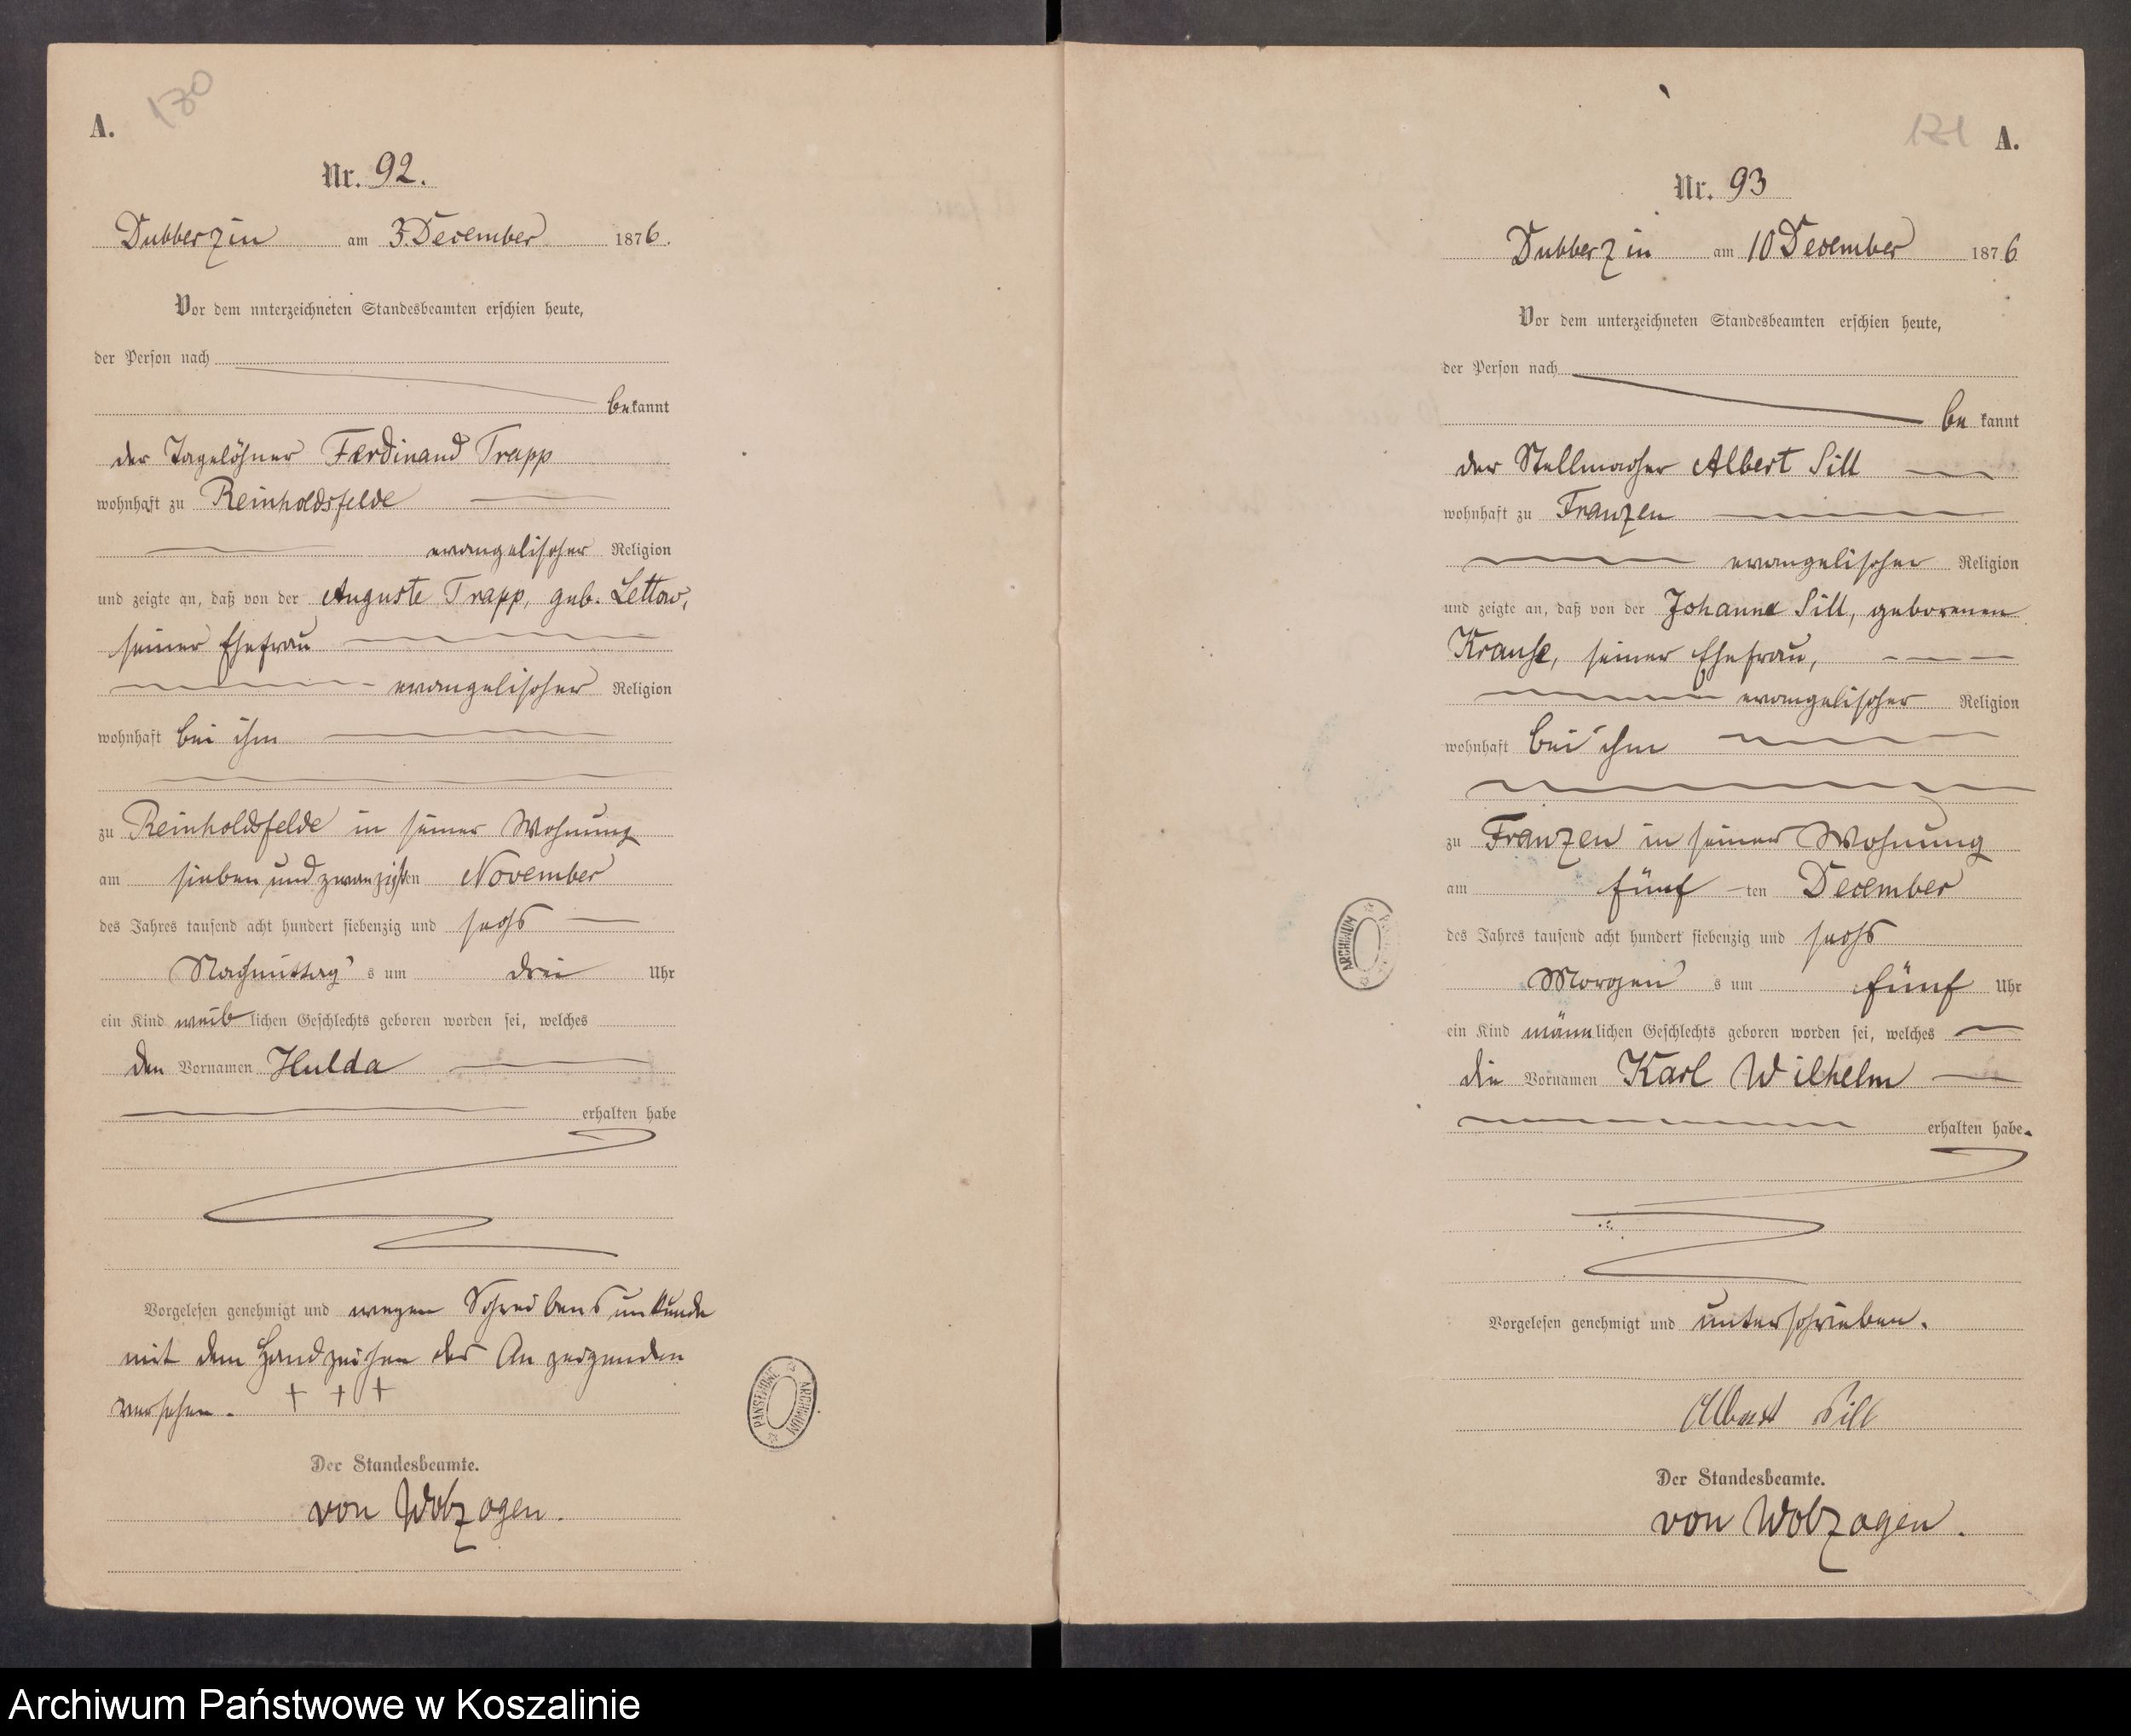 180
A.
Nr. 92.
Dubberzin am 3. December 1876.
Vor dem unterzeichneten Standesbeamten erschien heute,
der Person nach
bekannt
der Tagelöhner Ferdinand Trapp
wohnhaft zu Reinholdsfelde
evangelischer Religion
und zeigte an, daß von der Auguste Trapp, geb. Lettow,
seiner Ehefrau
evangelischer Religion
wohnhaft bei ihm
zu Reinholdsfelde in seiner Wohnung
am sieben und zwanzigsten November
des Jahres tausend acht hundert siebenzig und sechs
Nachmittags um drei Uhr
ein Kind weiblichen Geschlechts geboren worden sei, welches
den Vornamen Hulda
erhalten habe
Vorgelesen genehmigt und wegen Schreibensunkunde
mit dem Handzeichen des Anzeigenden
versehen. + + +
PAŃSTWOWE ARCHIWUM
Der Standesbeamte.
von Wobzogen.
121 A.
Nr. 93
Dubberzin am 10 December 1876
Vor dem unterzeichneten Standesbeamten erschien heute,
der Person nach
bekannt
der Stellmacher Albert Sill
wohnhaft zu Franzen
evangelischer Religion
und zeigte an, daß von der Johanne Sill, geborenen
Krause, seiner Ehefrau,
evangelischer Religion
wohnhaft bei ihm
zu Franzen in seiner Wohnung
am fünf-ten December
des Jahres tausend acht hundert siebenzig und sechs
Morgens um fünf Uhr
ein Kind männlichen Geschlechts geboren worden sei, welches
die Vornamen Karl Wilhelm
erhalten habe.
ARCHIWUM
Vorgelesen genehmigt und unterschrieben.
Albert Sill
Der Standesbeamte.
von Wobzogen.
Archiwum Państwowe w Koszalinie